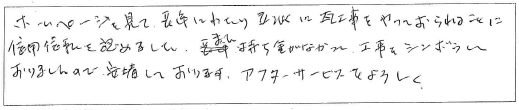 ホームページを見て、長年にわたり 瓦工事をやっておられることに
信用信頼を認めました。持ち金がなかった 工事をシンボウして
おりましたので 安堵しております。アフターサービスをよろしく